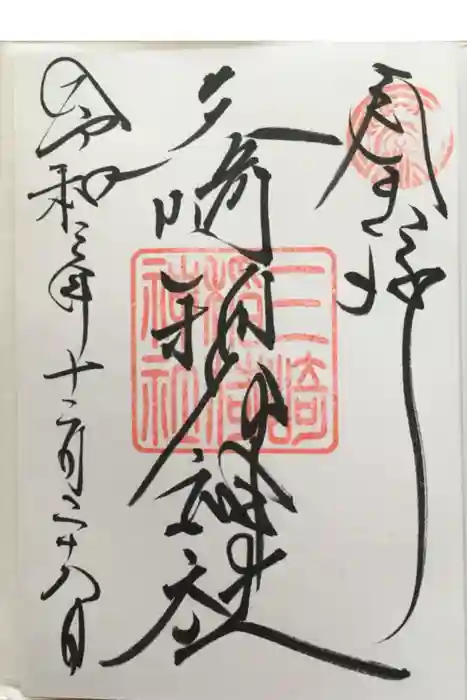 奉拝
三崎稲荷神社
三崎
稲荷
神社
令和三年十二月二十八日